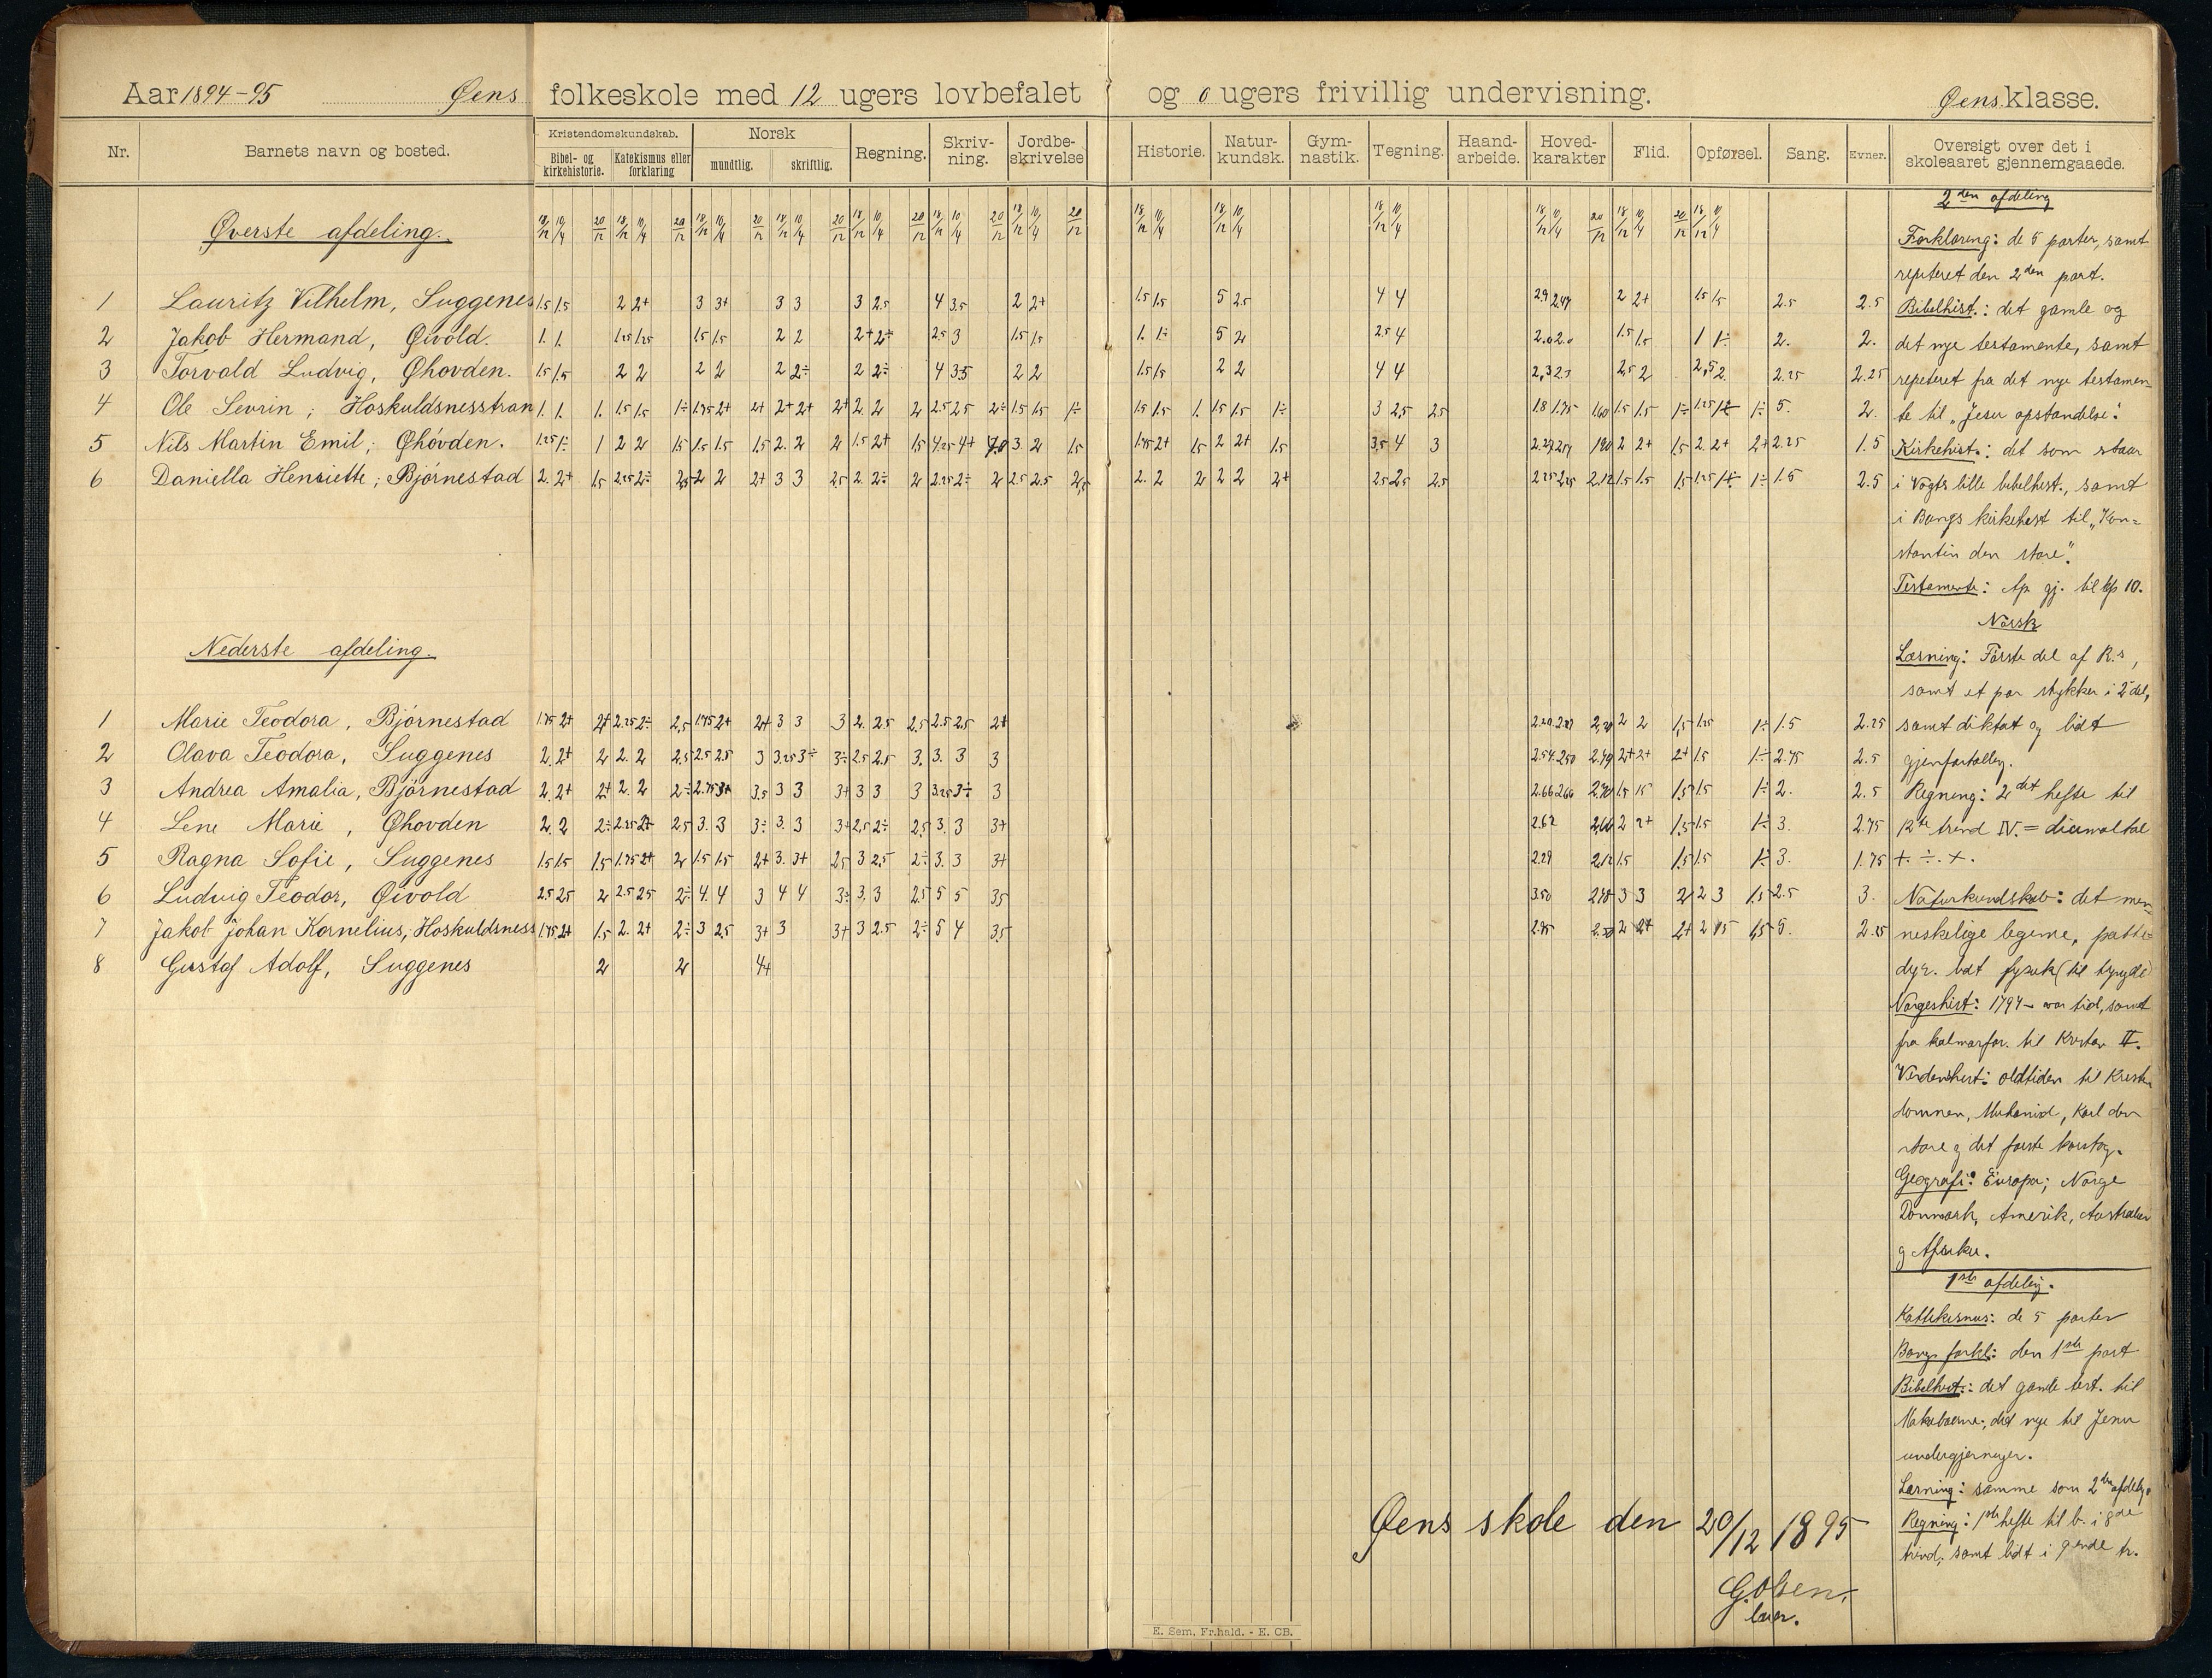 Aar 1894-95 Øens folkeskole med 12 ugers lovbefalet og 0 ugers frivillig undervisning. Øens klasse.
Nr. Barnets navn og bosted. Kristendomskundskab. Norsk Regning. Skriv-ning. Jordbe-skrivelse Historie. Natur-kundsk. Gym-nastik. Tegning. Haand-arbeide. Hoved-karakter Flid. Opførsel. Sang. Evner. Oversigt over det i skoleaaret gjennemgaaede.
Bibel- og kirkehistorie. Katekismus eller forklaring mundtlig. skriftlig.
Øverste afdeling.
1 Lauritz Vilhelm, Suggenes 1.5 1.5 2 2+ 3 3+ 3 3 3 2.5 4 3.5 2 2+ 1.5 1.5 5 2.5 4 4 2 2+ 1.5 1.5 2.5 2.5
2 Jakob Hermand, Øivold. 1. 1. 1.25 1.25 1.5 1.5 2 2 2+ 2÷ 2.5 3 1.5 1.5 1. 1÷ 5 2 2.5 4 2.0 2.0 1.5 1.5 1 1÷ 2. 2.
3 Torvald Ludvig, Øhovden. 1.5 1.5 2 2 2 2 2 2÷ 2 2÷ 4 3.5 2 2 1.5 1.5 2 2 4 4 2.5 2 2.5 2. 2.25 2.25
4 Ole Sevrin; Hoskuldsnesstran 1. 1. 1. 1.5 1.5 1÷ 1.75 2+ 2+ 2+ 2+ 2+ 2. 2 2 2.5 2.5 2÷ 1.5 1.5 1÷ 1.5 1.5 1. 1.5 1.5 1÷ 3 2.5 2.5 1.8 1.75 1.60 1.5 1.5 1÷ 5. 2.
5 Nils Martin Emil; Øhóvden. 1.25 1÷ 1 2 2 1.5 1.5 1.5 1.5 2. 2 2 1.5 2+ 1.5 4.25 4+ 3 2 1.5 1.75 2+ 1.5 2 2+ 1.5 3.5 4 3 1.90 2 2+ 1.5 2. 2+ 2+ 2.25 1.5
6 Daniella Henriette; Bjórnestad 2. 2+ 1.5 2.25 2÷ 2.5 2 2 2+ 3 3 2.5 2. 2÷ 2 2.25 2÷ 2 2.5 2.5 2.5 2. 2 2 2 2 2+ 2.5 2.5 2.5 2.25 2.25 2.12 1.5 1.5 1.5 1.25 1÷ 1÷ 1.5 2.5
Nederste afdeling.
1 Marie Teodora, Bjórnestad 1.75 2+ 2+ 2.25 2÷ 2.5 1.75 2+ 2+ 3 3 3 2. 2.5 2.5 2.5 2.5 2+ 2 2 1.5 1.25 1÷ 1.5 2.25
2 Olava Teodora, Suggenes 2. 2+ 2 2. 2 2.5 2.5 2.5 3 3.25 3÷ 3÷ 2.5 2.5 3. 3. 3 3 2.54 2.50 2.79 2+ 2+ 2+ 1.5 1÷ 2.75 2.5
3 Andrea Amalia, Bjórnestad 2. 2+ 2+ 2. 2 2÷ 2.75 3+ 3.5 3 3 3+ 3 3 3 3.25 3÷ 3 2.66 2.66 1.5 1.5 1.5 1.5 1÷ 2. 2.5
4 Lene Marie, Øhovden 2. 2 2÷ 2.25 2+ 2.5 3. 3 3÷ 3. 3 3+ 2.5 2÷ 2.5 3. 3 3+ 2.62 2.66 2 2+ 1.5 1.5 1÷ 3. 2.75
5 Ragna Sofie, Suggenes 1.5 1.5 1.5 1.75 2+ 2 1.5 1.5 2+ 3. 3+ 2.5 3 2.5 2÷ 3. 3 3+ 2.29 2.12 1.5 1.5 1.5 1÷ 3. 1.75
6 Ludvig Teodor, Øivold 2.5 2.5 2 2.5 2.5 2÷ 4. 4 3 4 4 3÷ 3. 3 2.5 5 5 3.5 3.50 3 3 2 2 3 1.5 2.5 3.
7 Jakob Johan Kornelius, Hoskuldsness 1.75 2+ 1.5 2. 2+ 2÷ 3 2.5 3+ 3 3+ 3 2.5 2÷ 5 4 3.5 2.75 2 2+ 2+ 2 1.5 1.5 5. 2.25
8 Gustaf Adolf, Suggenes 2 2 4+
2den afdeling
Forklaring: de 5 parter, samt
repeteret den 2den part.
Bibelhist.: det gamle og
det nye testamente, samt
repeteret fra det nye testamen
te til „Jesu opstandelse".
Kirkehist.: det som staar
i Vogts lille bibelhist., samt
i Bangs kirkehist til „Kon=
stantin den store".
Testamente: Ap. gj. til kp 10.
Norsk
Læsning: Første del af R.s,
samt et par stykker i 2 del,
samt diktat og lidt
gjenfortælling.
Regning: 2det hefte til
trind IV. = diesimaltal
+. ÷. ×.
Naturkundskab: det men
neskelige legeme, patte=
dyr. lidt fysik (til tyngde)
Norgeshist: 1797 - vor tid, samt
fra kalmarfor. til Kristian II.
Verdenshist: oldtiden til Kristen
dommen, Muhamed, Karl den
store og det første korstog.
Geografi: Europa; Norge
Danmark, Amerik, Australien
og Afrika.
1ste afdeling.
Kattekismus: de 5 parter
Bangs forkl: den 1ste part
Bibelhist.: det gamle test. til
Makabæerne; det nye til Jesu
undergjerninger.
Læsning: samme som 2den afdeling
Regning: 1ste hefte til b. i 8de
trind, samt lidt i 9ende tr.
Øens skole den 20/12 1895
G. Olsen.
lær.
E. Sem, Fr.hald. - E. CB.